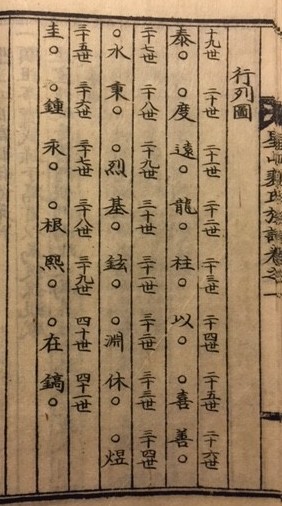 星山
氏族譜卷之一
行列圖
十九世 二十世 二十一世 二十二世 二十三世 二十四世 二十五世 二十六世
泰○ ○度 遠○ ○龍 柱○ ○以 ○喜 善○
二十七世 二十八世 二十九世 三十世 三十一世 三十二世 三十三世 三十四世
○永 秉○ ○烈 基○ ○鉉 ○淵 休○ ○煜
三十五世 三十六世 三十七世 三十八世 三十九世 四十世 四十一世
圭○ ○鍾 永○ ○根 熙○ ○在 鎬○